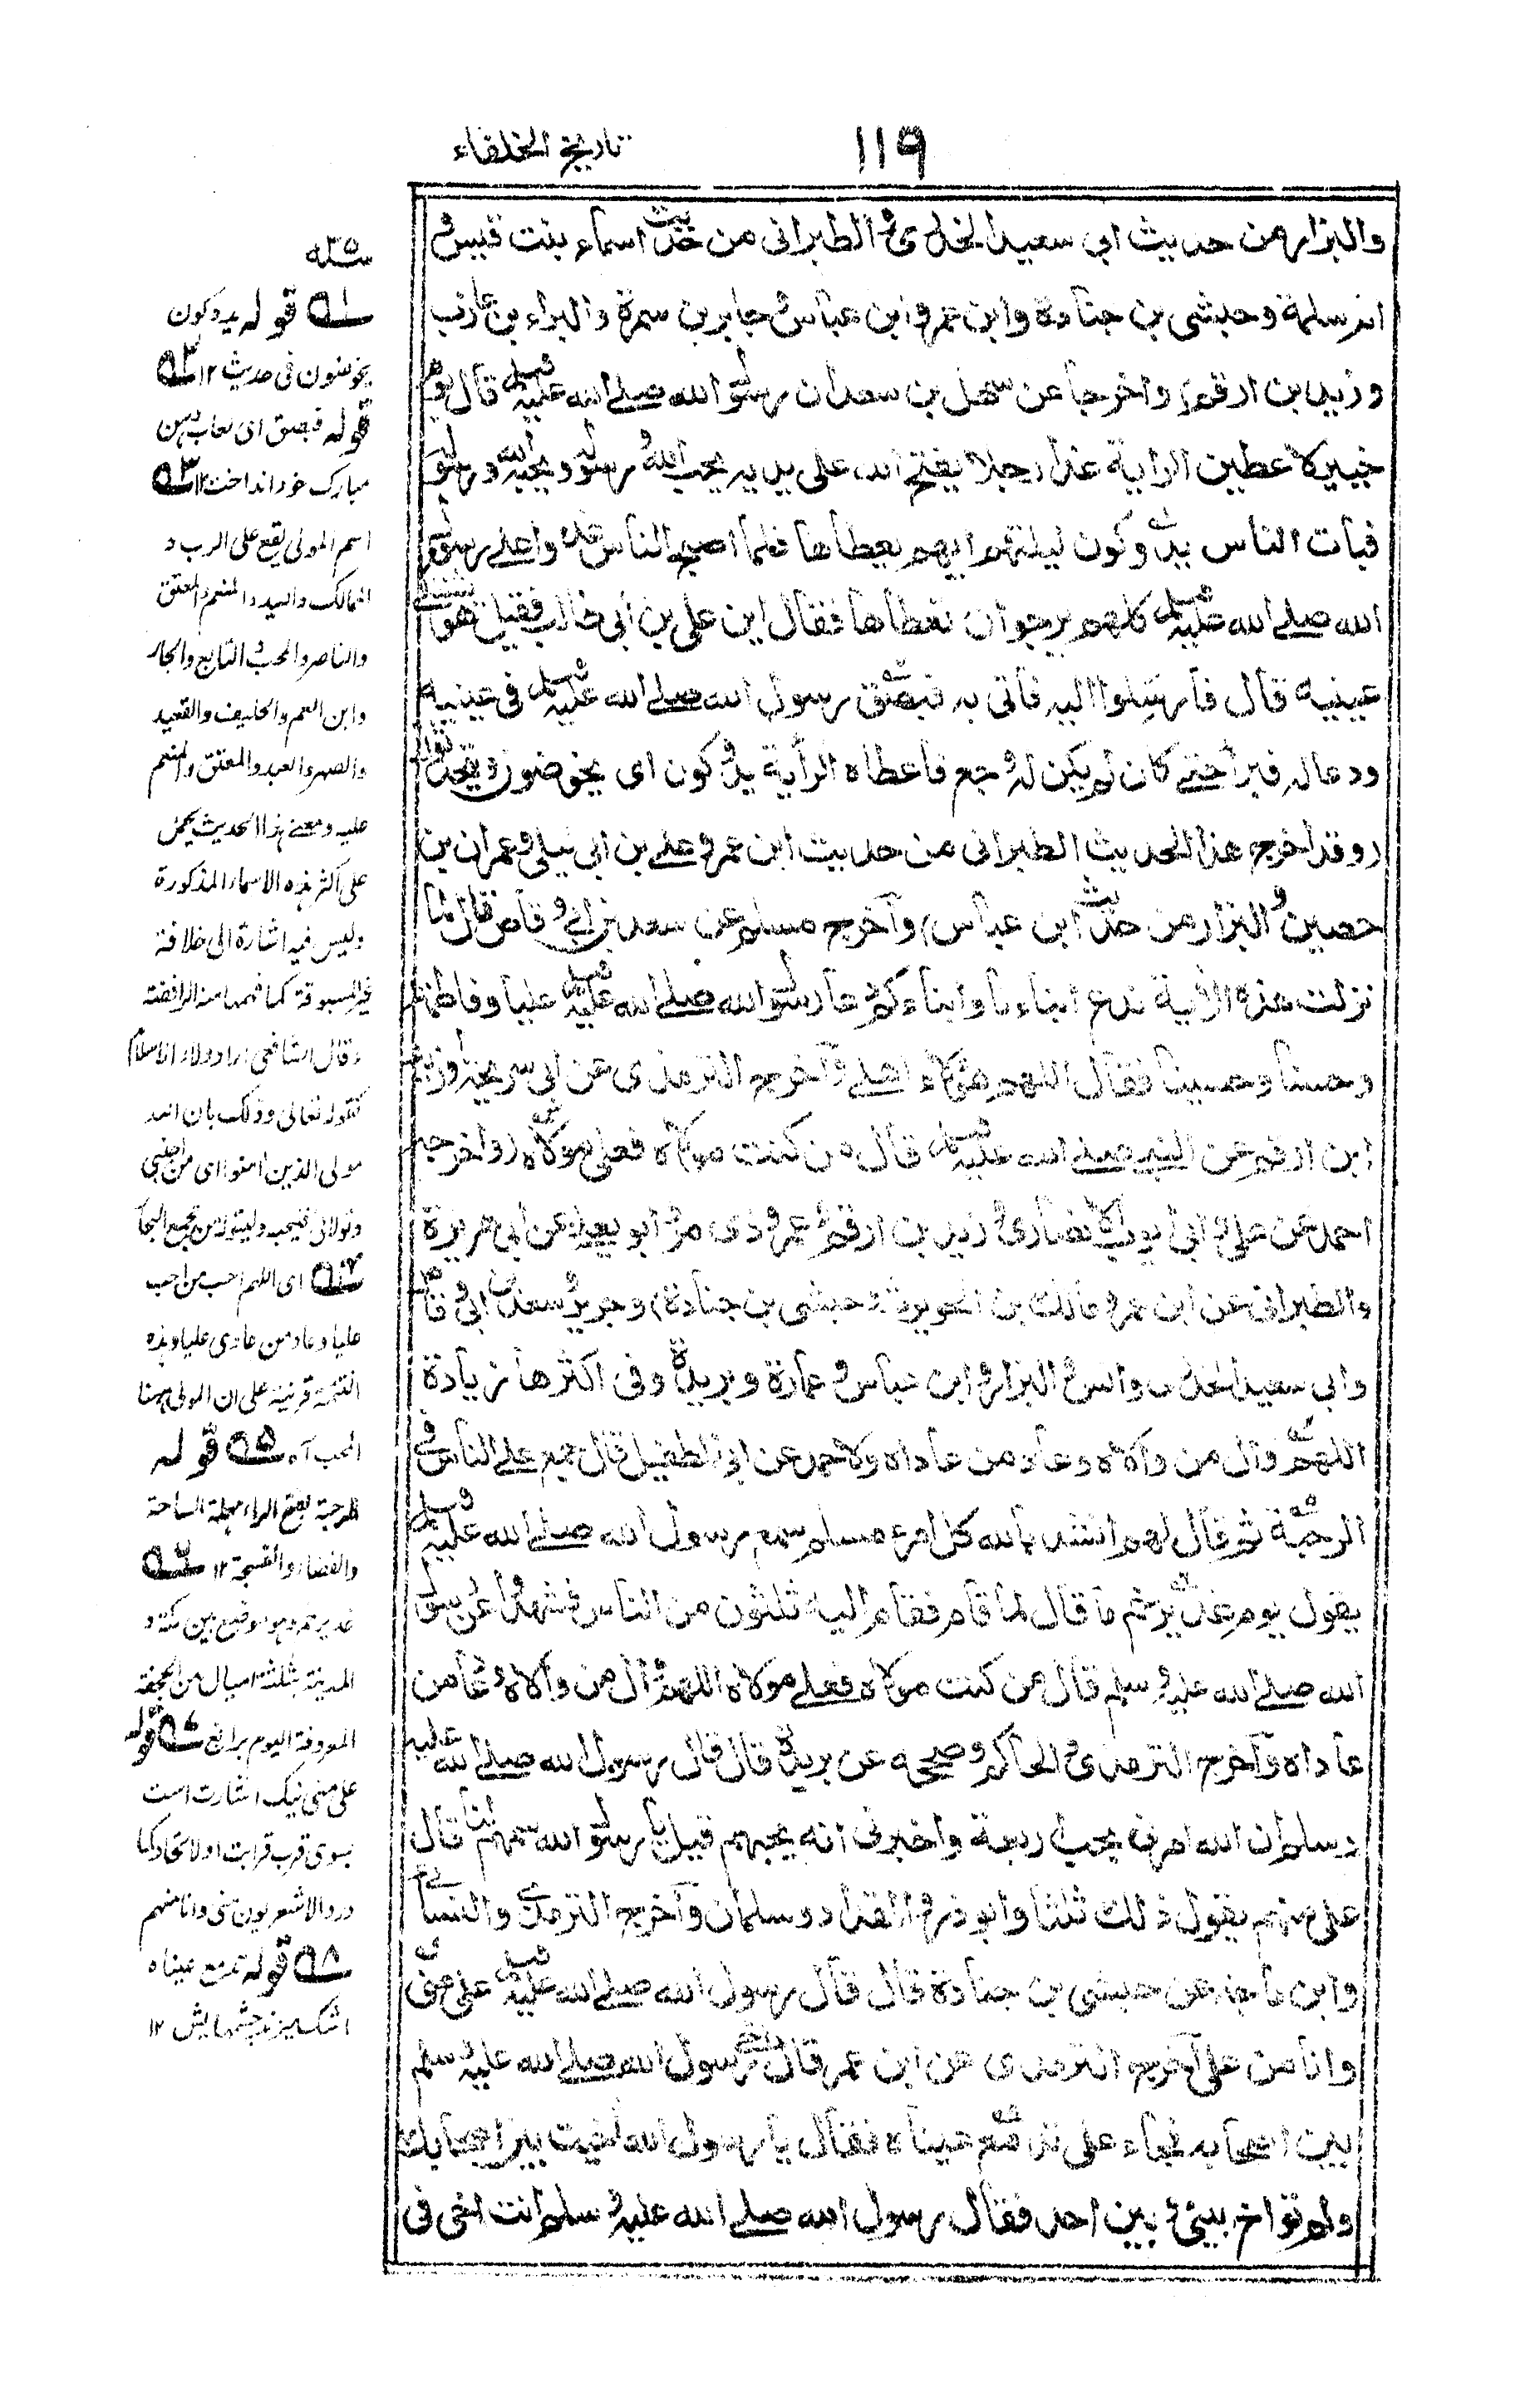 ١١٩
تاریخ الخلفاء
والبزار من حدیث ابی سعید الخدری و الطبرانی من حدیث اسماء بنت قیس و
ام سلمة وحبشی بن جنادة وابن عمر و ابن عباس و جابر بن سمرة والبراء بن عازب
وزید بن ارقم) واخرجا عن سهل بن سعد ان رسول الله صلے الله علیه وسلم قال یوم
خیبر لاعطین الرایة غدا رجلا یفتح الله علی یدیه یحب الله و رسوله ویحبه الله ورسوله
فبات الناس یدوکون لیلتهم ایهم یعطاها فلما اصبح الناس غدوا علے رسول
الله صلے الله علیه وسلم کلهم یرجو ان یعطاها فقال این علی بن ابی طالب فقیل هو یشتکی
عینیه قال فارسلوا الیه فاتی به فبصق رسول الله صلے الله علیه وسلم فی عینیه
ودعا له فبرأ حتے کان لم یکن له وجع فاعطاه الرایة یدوکون ای یخوضون ویتحدثون
(وقد اخرج هذا الحدیث الطبرانی من حدیث ابن عمر و علے بن ابی لیلی و عمران بن
حصین و البزار من حدیث ابن عباس) وآخرج مسلم عن سعد بن ابی وقاص قال لما
نزلت هذه الآیة ندع ابناءنا وابناءکم دعا رسول الله صلے الله علیه وسلم علیا وفاطمة
وحسنا وحسینا فقال اللهم هؤلاء اهلے وآخرج الترمذی عن ابی سریحة او زید
ابن ارقم عن النبی صلے الله علیه وسلم قال من کنت مولاه فعلی مولاه (واخرجه
احمد عن علی و ابی ایوب الانصاری و زید بن ارقم و عمرو ذی مر و ابو یعلے عن ابی هریرة
والطبرانی عن ابن عمر و مالک بن الحویرث و حبشی بن جنادة) وجریر و سعد بن ابی وقاص
وابی سعید الخدری وانس و البزار و ابن عباس و عمارة وبریدة وفی اکثرها زیادة
اللهم وال من والاه وعاد من عاداه ولاحمد عن ابی الطفیل قال جمع علے الناس فی
الرحبة ثم قال لهم انشد بالله کل امرء مسلم سمع رسول الله صلے الله علیه وسلم
یقول یوم غدیر خم ما قال لما قام فقام الیه ثلثون من الناس فشهدوا ان رسول
الله صلے الله علیه و سلم قال من کنت مولاه فعلے مولاه اللهم وال من والاه و عاد من
عاداه وآخرج الترمذی و الحاکم وصححه عن بریدة قال قال رسول الله صلے الله علیه
وسلم ان الله امرنی بحب اربعة واخبرنی انه یحبهم قیل یا رسول الله سمهم لنا قال
علی منهم یقول ذلک ثلثا وابو ذر و المقداد وسلمان وآخرج الترمذی والنسائی
وابن ماجة عن حبشی بن جنادة قال قال رسول الله صلے الله علیه وسلم علی منی
وانا من علی آخرج الترمذی عن ابن عمر قال آخی رسول الله صلے الله علیه و سلم
بین اصحابه فجاء علی تدمع عیناه فقال یا رسول الله آخیت بین اصحابک
ولم تواخ بینی و بین احد فقال رسول الله صلے الله علیه و سلم انت اخی فی
سنه ٣٥
٥١ قوله یدوکون
یخوضون فی حدیث ١٢ ٥٢
قوله فبصق ای لعاب دہن
مبارک خود انداخت ١٢ ٥٣
اسم المولی یقع علی الرب و
المالک والسید والمنعم والمعتق
والناصر والمحب والتابع والجار
وابن العم والحلیف والعقید
والصهر والعبد والمعتق والمنعم
علیه ومعنے هذا الحدیث یحمل
علی اکثر هذه الاسماء المذکورة
ولیس فیه اشارة الی خلافة
غیر المسبوقة کما فهمها منه الرافضة
وقال الشافعی اراد ولاء الاسلام
کقوله تعالی وذلک بان الله
مولی الذین امنوا ای من احبنی
٥٤ ای اللهم احب من احب
علیا وعاد من عادی علیا وهذه
التتمة قرینة علی ان المولی ههنا
المحب آه ٥٥ قوله
الرحبة بفتح الراء مهملة الساحة
والفضاء والفسحة ١٢ ٥٦
غدیر خم وهو موضع بین مکة و
المدینة بثلثة امیال من الجحفة
المعروفة الیوم برابغ ٥٧ قوله
علی منی نیک اشارت است
بسوی قرب قرابت او لاتحاد کما
ورد الاشعریون منی وانا منهم
٥٨ قوله تدمع عیناه
اشک میریزد چشمهایش ١٢